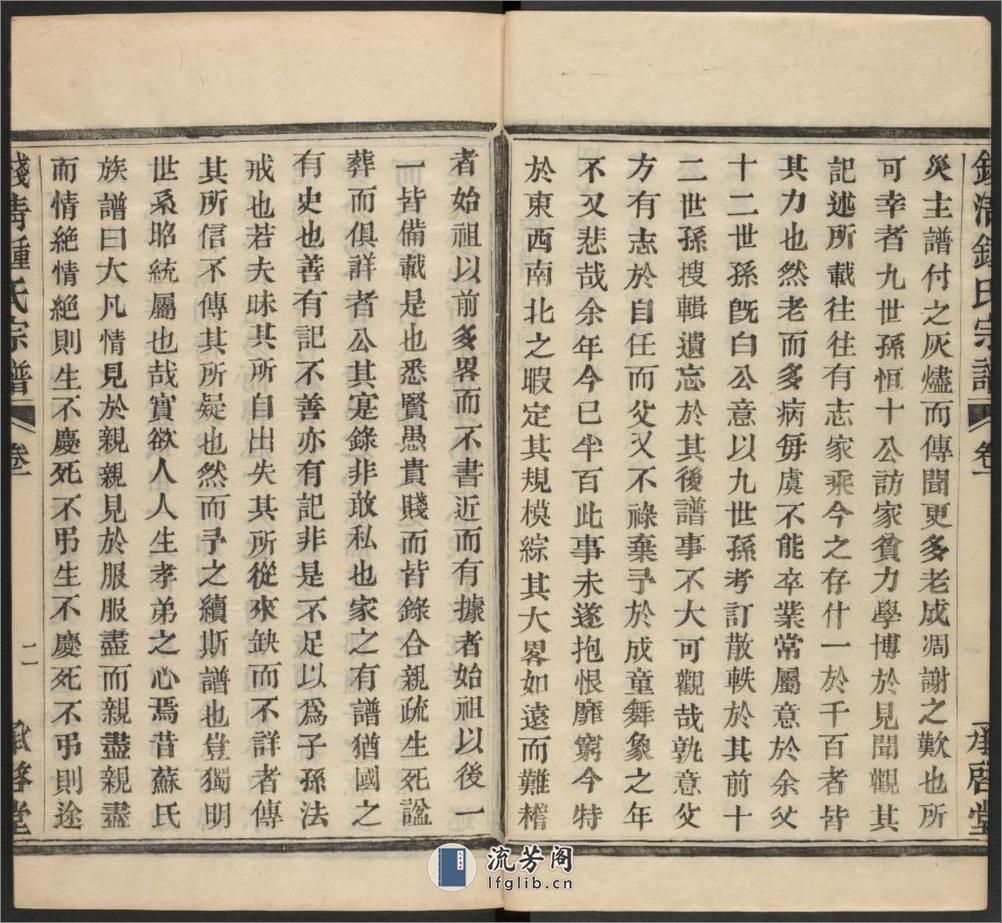 災主譜付之灰燼而傳聞更多老成凋謝之歎也所
可幸者九世孫恒十公訪家貧力學博於見聞觀其
記述所載往往有志家乘今之存什一於千百者皆
其力也然老而多病毎虞不能卒業常屬意於余父
十二世孫旣白公意以九世孫考訂散軼於其前十
二世孫搜輯遺忘於其後譜事不大可觀哉孰意父
方有志於自任而父又不祿棄予於成童舞象之年
不又悲哉余年今已半百此事未遂抱恨靡窮今特
於東西南北之暇定其規模綜其大畧如遠而難稽
者始祖以前多畧而不書近而有據者始祖以後一
一皆備載是也悉賢愚貴賤而皆錄合親疏生死諡
葬而俱詳者公其寔錄非敢私也家之有譜猶國之
有史也善有記不善亦有記非是不足以爲子孫法
戒也若夫昧其所自出失其所從來缺而不詳者傳
其所信不傳其所疑也然而予之續斯譜也豈獨明
世系昭統屬也哉實欲人人生孝弟之心焉昔蘇氏
族譜曰大凡情見於親親見於服服盡而親盡親盡
而情絶情絶則生不慶死不弔生不慶死不弔則途
錢淸鍾氏宗譜 卷一 二 承啓堂
流芳阁
lfglib.cn